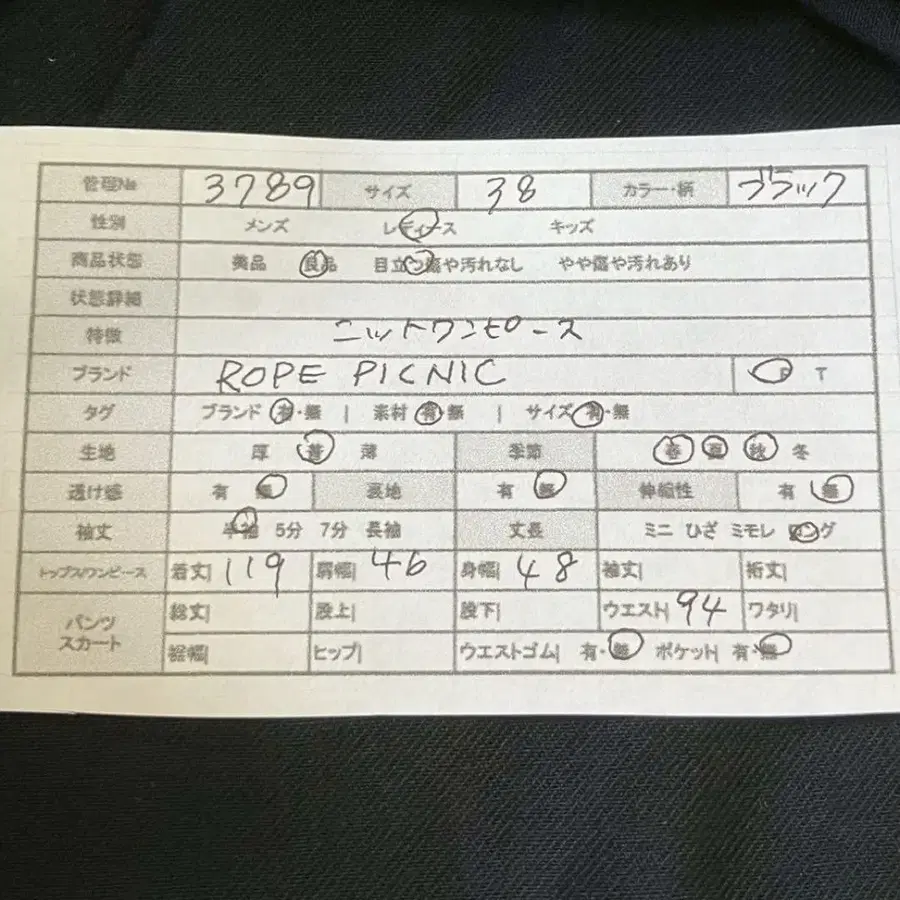 管理№ 3789 サイズ 38 カラー・柄 ブラック
性別 メンズ レディース キッズ
商品状態 美品 良品 目立つ傷や汚れなし やや傷や汚れあり
状態詳細
特徴 ニットワンピース
ブランド ROPE PICNIC F T
タグ ブランド 有・無 | 素材 有・無 | サイズ 有・無
生地 厚 普 薄 季節 春 夏 秋 冬
透け感 有 無 裏地 有 無 伸縮性 有 無
袖丈 半袖 5分 7分 長袖 丈長 ミニ ひざ ミモレ ロング
トップス/ワンピース 着丈| 119 肩幅| 46 身幅| 48 袖丈| 裄丈|
パンツ スカート 総丈| 股上| 股下| ウエスト| 94 ワタリ|
裾幅| ヒップ| ウエストゴム| 有・無 ポケット| 有・無